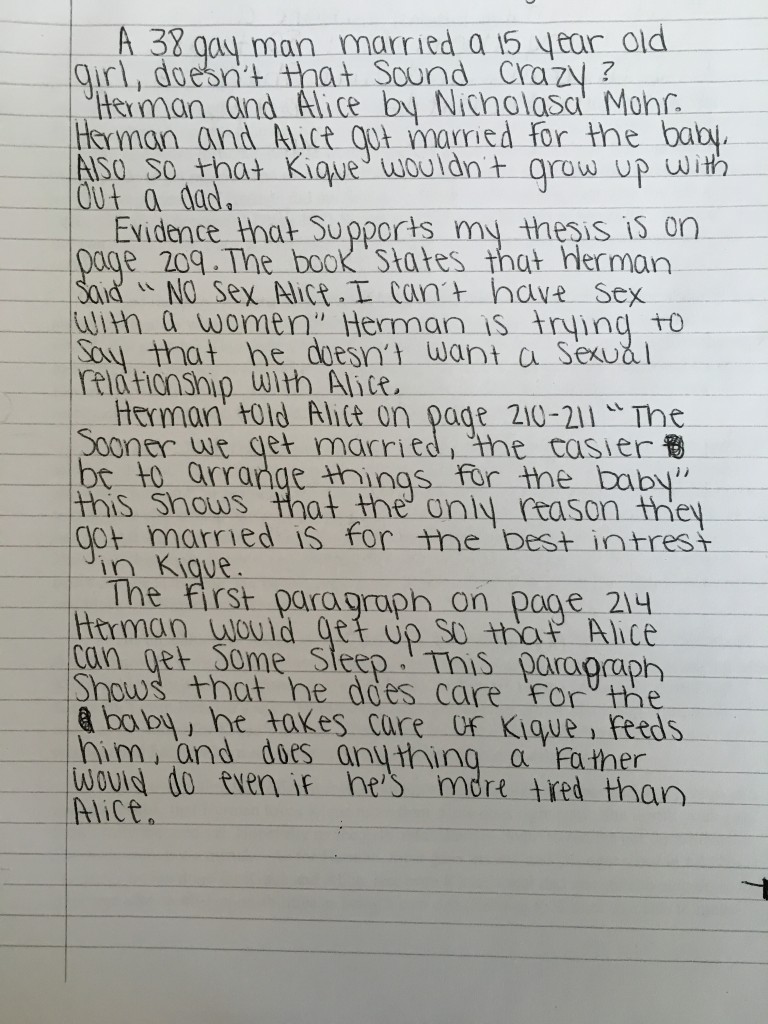 A 38 gay man married a 15 year old
girl, doesn't that sound crazy?
"Herman and Alice by Nicholasa Mohr.
Herman and Alice got married for the baby.
Also so that Kique wouldn't grow up with
out a dad.
Evidence that supports my thesis is on
page 209. The book states that Herman
said "No sex Alice. I can't have sex
with a women" Herman is trying to
say that he doesn't want a sexual
relationship with Alice.
Herman told Alice on page 210-211 "The
sooner we get married, the easier
be to arrange things for the baby"
this shows that the only reason they
got married is for the best intrest
in Kique.
The first paragraph on page 214
Herman would get up so that Alice
can get some sleep. This paragraph
shows that he does care for the
baby, he takes care of Kique, feeds
him, and does anything a Father
would do even if he's more tired than
Alice.